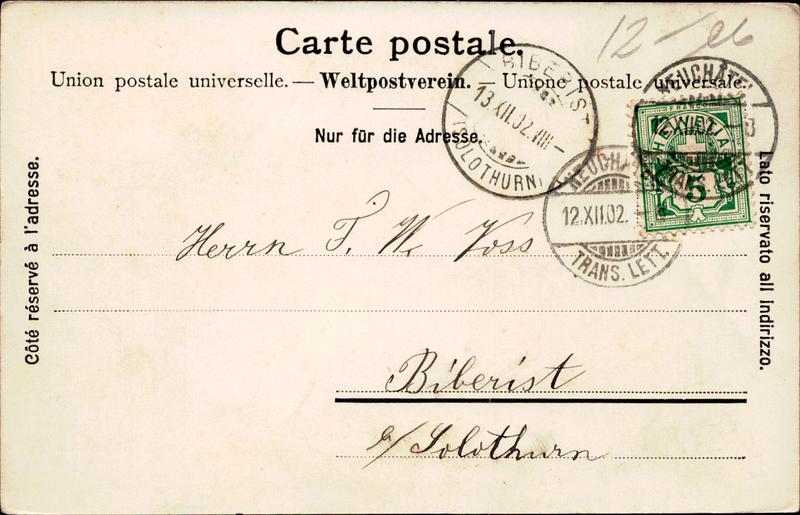 12 -
Carte postale.
Union postale universelle. — Weltpostverein. — Unione postale universale.
Nur für die Adresse.
BIBERIST
13.XII.02.VIII-
(SOLOTHURN)
NEUCHÂTEL
TRANS. LETT.
HELVETIA
5
NEUCHÂTEL
12.XII.02.
TRANS. LETT.
Côté réservé à l'adresse.
Lato riservato all Indirizzo.
Herrn F. W. Voss
Biberist
a/Solothurn